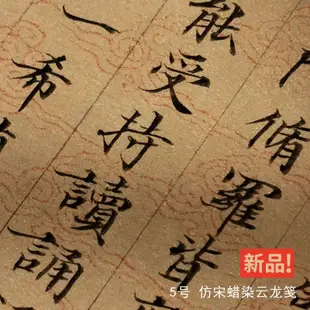 脩羅皆
能受持讀誦
一希
新品!
5号 仿宋蜡染云龙笺